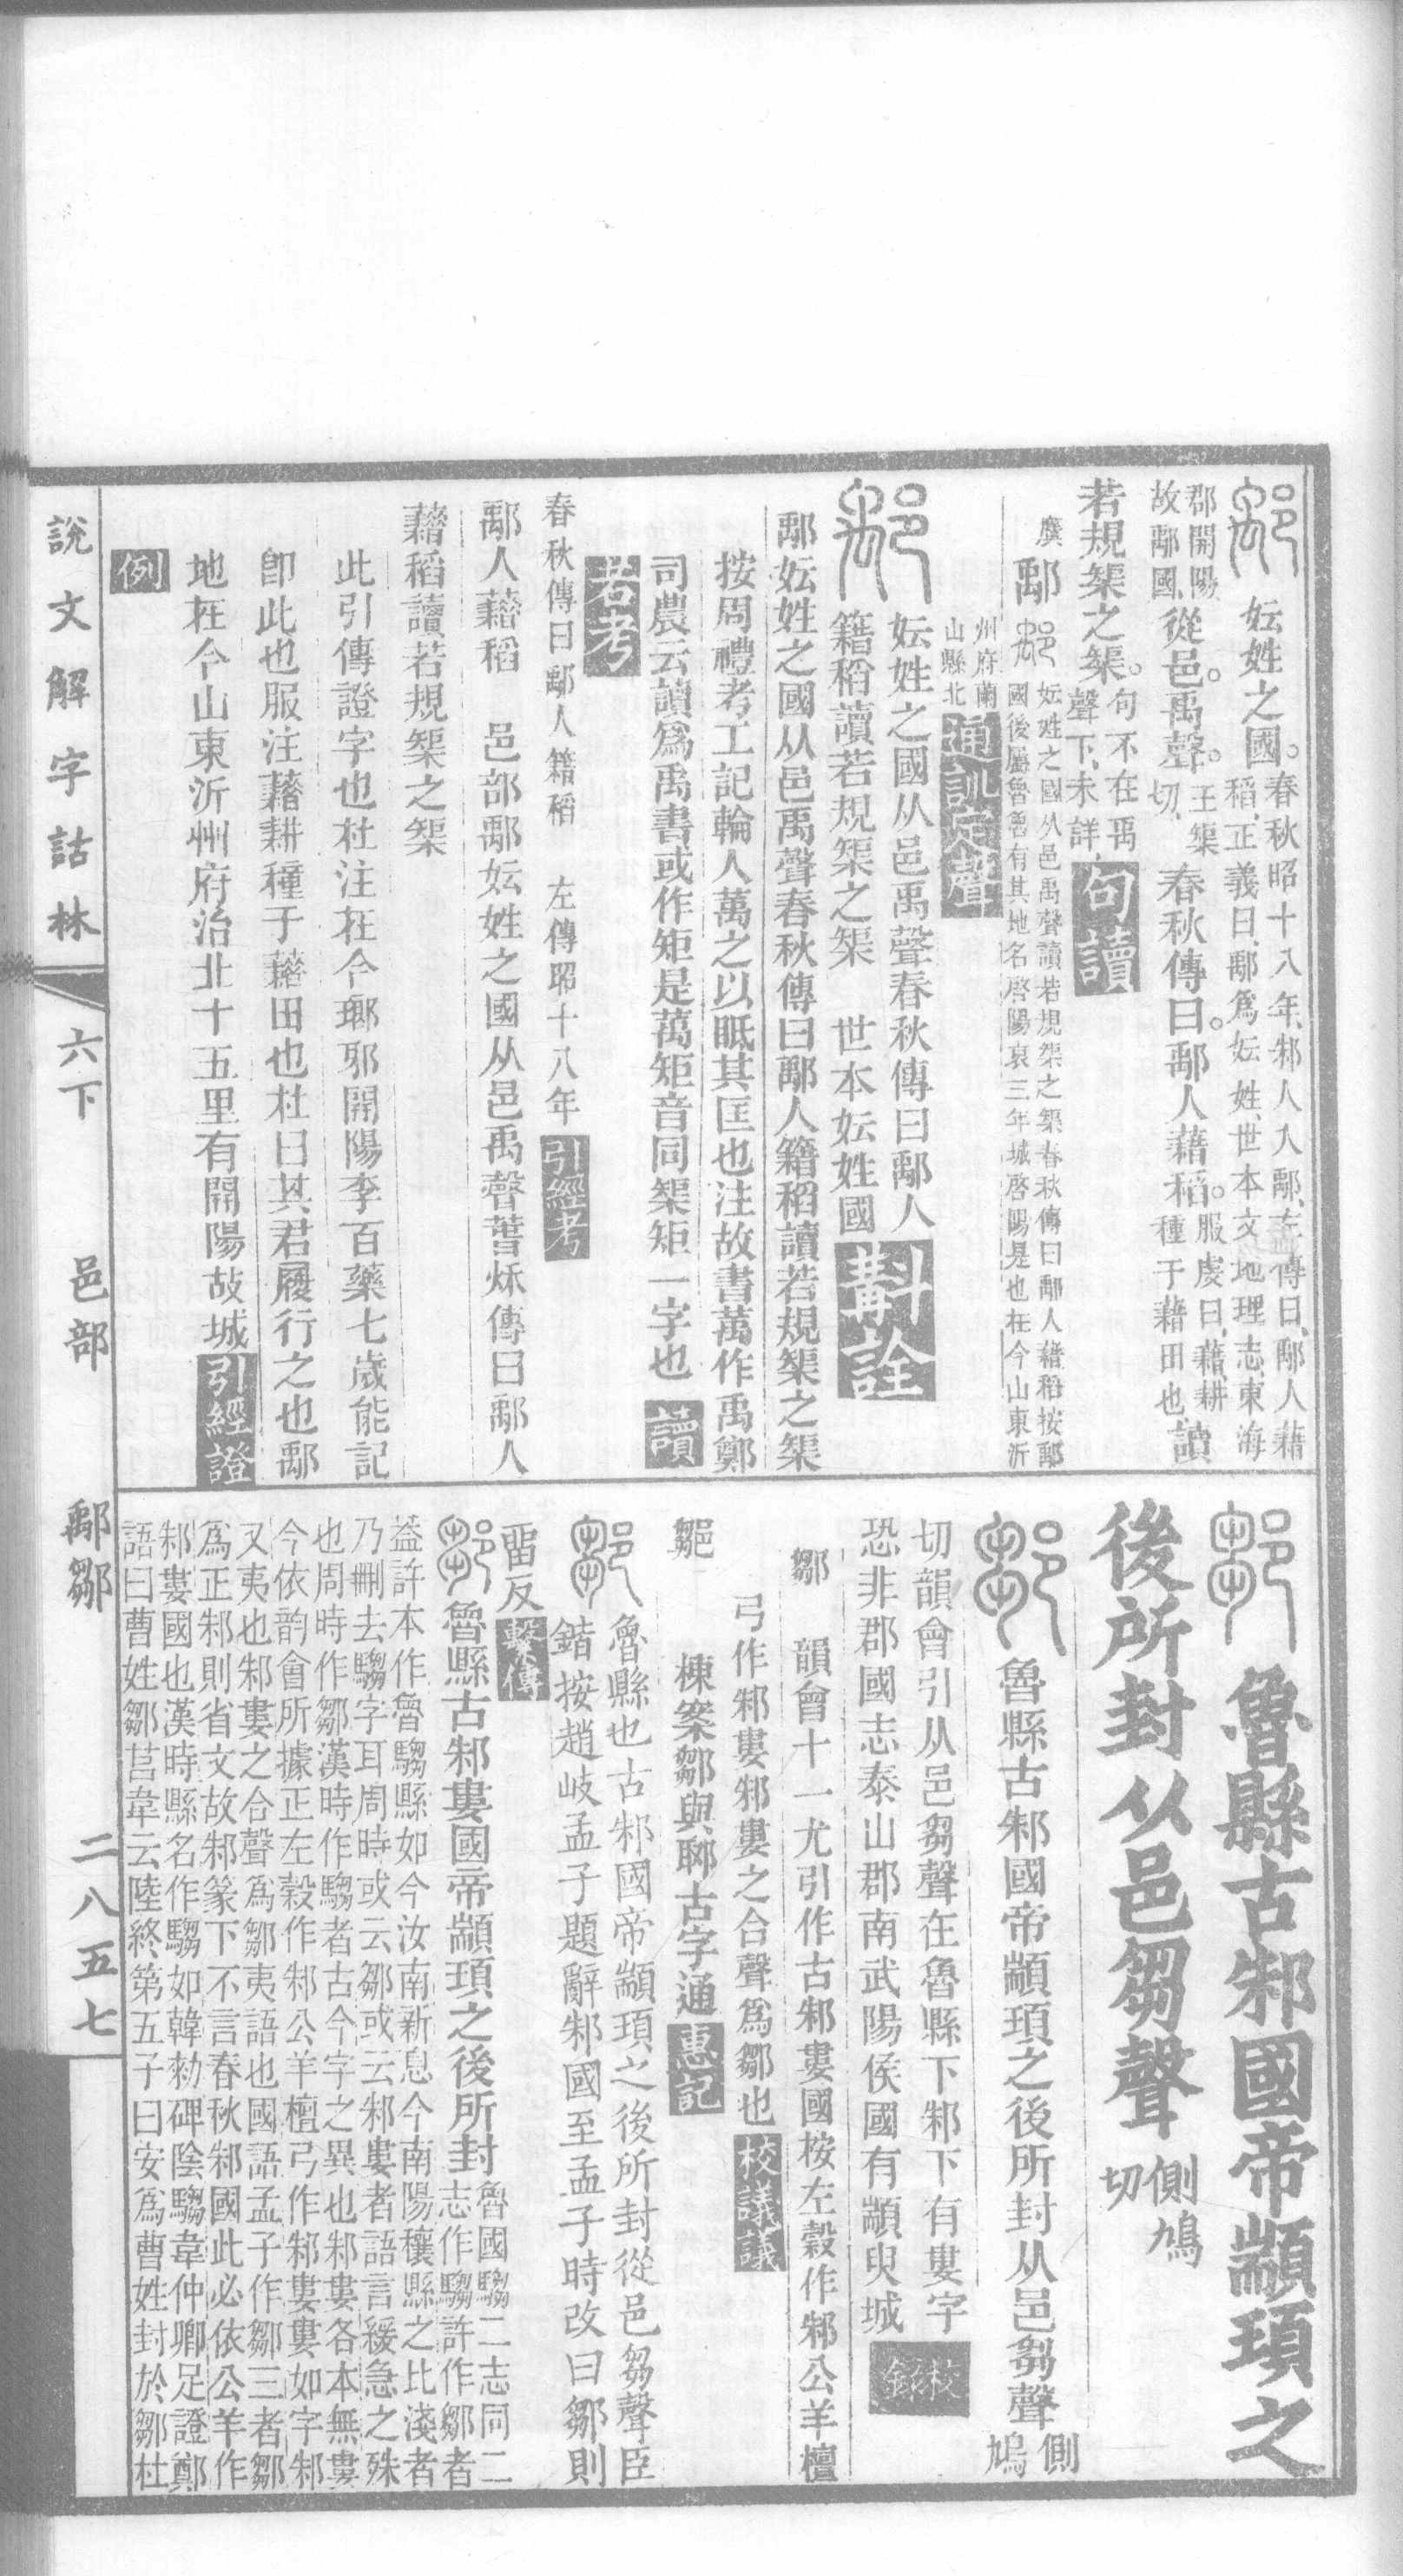 妘姓之國。春秋昭十八年、邾人入鄅、左傳曰、鄅人藉
稻、正義曰、鄅爲妘姓、世本文、地理志、東海
郡開陽
故鄅國、從邑。禹聲。王榘
切、春秋傳曰。鄅人藉稻。服虔曰、藉、耕
種于藉田也、讀
若規榘之榘。句不在禹
聲下、未詳、句讀
鄅 妘姓之國从邑禹聲讀若規榘之榘春秋傳曰鄅人藉稻按鄅
國後屬魯魯有其地名啓陽哀三年城啓陽是也在今山東沂
州府蘭
山縣北 通訓定聲
妘姓之國从邑禹聲春秋傳曰鄅人
籍稻讀若規榘之榘 世本妘姓國 斠詮
鄅妘姓之國从邑禹聲春秋傳曰鄅人籍稻讀若規榘之榘
按周禮考工記輪人萬之以眡其匡也注故書萬作禹鄭
司農云讀爲禹書或作矩是萬矩音同榘矩一字也 讀
若考
春秋傳曰鄅人籍稻 左傳昭十八年 引經考
鄅人藉稻 邑部鄅妘姓之國从邑禹聲春秋傳曰鄅人
藉稻讀若規榘之榘
此引傳證字也杜注在今瑯邪開陽李百藥七歲能記
卽此也服注藉耕種于藉田也杜曰其君履行之也鄅
地在今山東沂州府治北十五里有開陽故城 引經證
例
魯縣古邾國帝顓頊之
後所封从邑芻聲 側鳩
切
魯縣古邾國帝顓頊之後所封从邑芻聲 側
鳩
切韻會引从邑芻聲在魯縣下邾下有婁字
恐非郡國志泰山郡南武陽侯國有顓臾城 校錄
鄒 韻會十一尤引作古邾婁國按左穀作邾公羊檀
弓作邾婁邾婁之合聲爲鄒也 校議議
棟案鄒與郰古字通 惠記
魯縣也古邾國帝顓頊之後所封從邑芻聲臣
鍇按趙岐孟子題辭邾國至孟子時改曰鄒則
畱反 繫傳
魯縣古邾婁國帝顓頊之後所封 魯國騶二志同二
志作騶許作鄒者
蓋許本作魯騶縣如今汝南新息今南陽穰縣之比淺者
乃刪去騶字耳周時或云鄒或云邾婁者語言緩急之殊
也周時作鄒漢時作騶者古今字之異也邾婁各本無婁
今依韵會所據正左穀作邾公羊檀弓作邾婁婁如字邾
又夷也邾婁之合聲爲鄒夷語也國語孟子作鄒三者鄒
爲正邾則省文故邾篆下不言春秋邾國此必依公羊作
邾婁國也漢時縣名作騶如韓勑碑陰騶韋仲卿足證鄭
語曰曹姓鄒莒韋云陸終第五子曰安爲曹姓封於鄒杜
說文解字詁林 六下 邑部 鄅鄒 二八五七